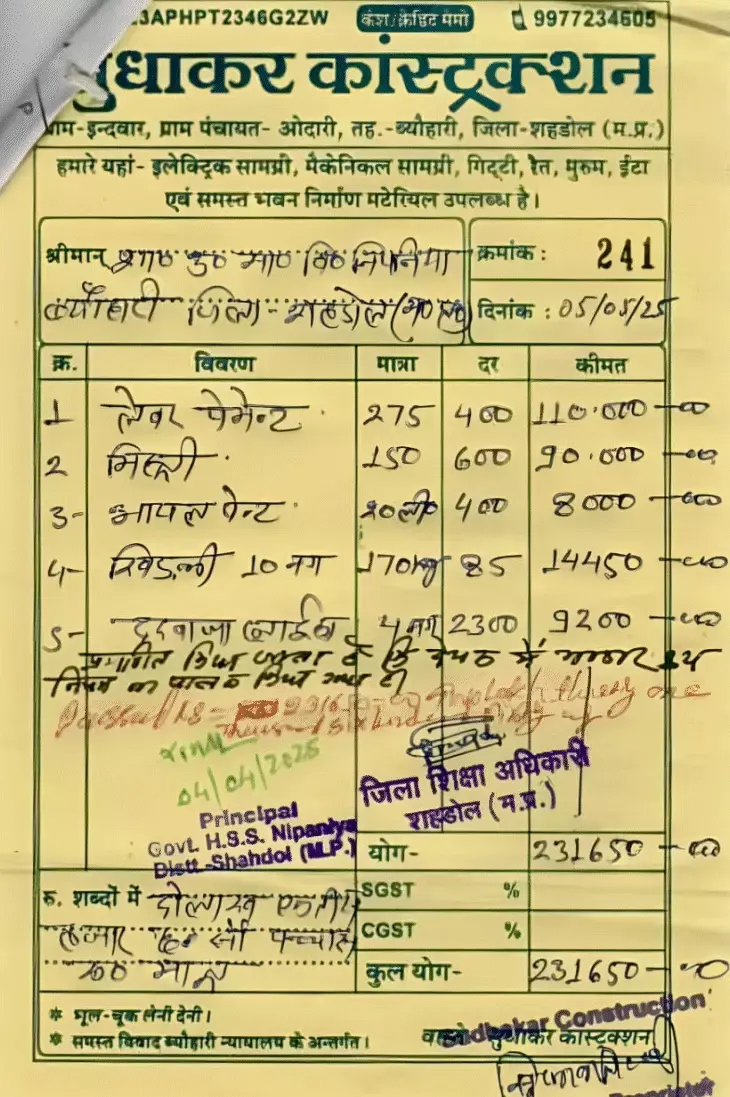 3APHPT2346G2ZW कैश/क्रेडिट मेमो 9977234605
सुधाकर कांस्ट्रक्शन
ग्राम-इन्दवार, ग्राम पंचायत- ओदारी, तह.-ब्यौहारी, जिला-शहडोल (म.प्र.)
हमारे यहां- इलेक्ट्रिक सामग्री, मैकेनिकल सामग्री, गिट्टी, रेत, मुरुम, ईंटा
एवं समस्त भवन निर्माण मटेरियल उपलब्ध है।
श्रीमान् शा० उ० मा० वि० निपनिया
क्रमांक : 241
ब्यौहारी जिला- शहडोल (म०प्र०)
दिनांक : 05/05/25
क्र. विवरण मात्रा दर कीमत
1 लेबर पेमेन्ट 275 400 110.000-00
2 मिस्त्री 150 600 90.000-00
3- आयल पेन्ट 20ली० 400 8000-00
4- खिड़की 10 नग 170kg 85 14450-00
5- दरवाजा 4 नग 2300 9200-00
प्रमाणित किया जाता है कि में
नियम का पालन किया गया है।
04/04/2025
Principal
Govt. H.S.S. Nipaniya
Distt-Shahdol (M.P.)
जिला शिक्षा अधिकारी
शहडोल (म.प्र.)
योग- 231650-00
रु. शब्दों में दो लाख एकतीस
हजार छः सौ पच्चास
रू० मात्र
SGST %
CGST %
कुल योग- 231650-00
* भूल-चूक लेनी देनी।
* समस्त विवाद ब्यौहारी न्यायालय के अन्तर्गत।
Sudhakar Construction
वास्ते सुधाकर कांस्ट्रक्शन
Proprietor